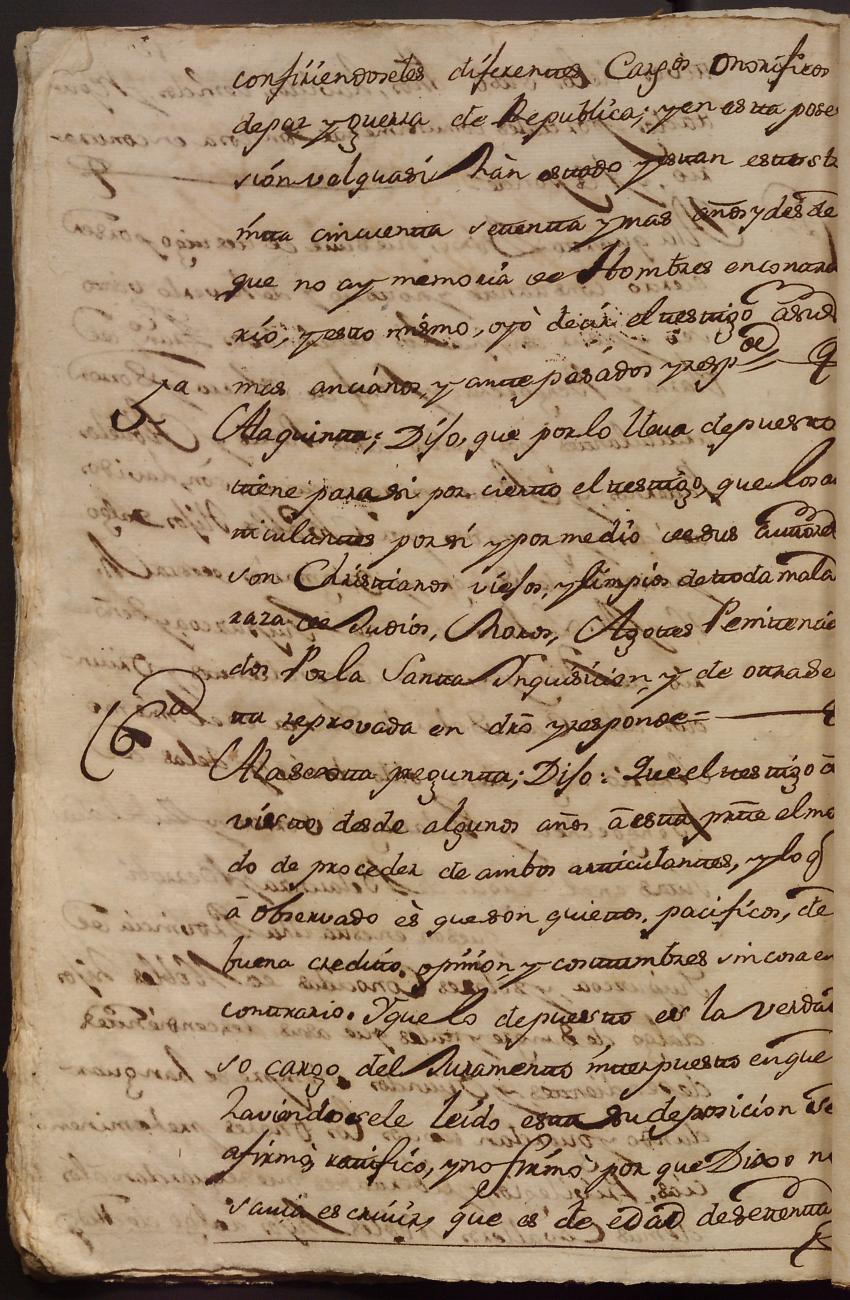 confiriendoseles diferentes Cargos onorificos
de paz y guerra de Republica; y en esta pose
sion vel quasi hàn estado y estan estos
cincuenta setenta y mas años y desde
que no ay memoria de Hombres en contra
rio, y esto mismo, oyò decir el testigo à sus
mas ancianos, y antepasados y respde
5ta Ala quinta; Dijo, que por lo lleva depuesto
tiene para si por cierto el testigo, que los ar
ticulantes por si y por medio de sus autores
son Christianos viejos, y limpios de toda mala
raza de Judios, Moros, Agotes Penitencia
dos Por la Santa Inquisicion, y de otra sec
ta reprovada en dro y responde=
6ta Ala sexta pregunta; Dijo: Que el testigo à
visto desde algunos años à esta prte el mo
do de proceder de ambos articulantes, y lo q
à observado ès que son quietos, pacificos, de
buena credito, opinion y costumbres sin cosa en
contrario. Y que lo depuesto es la verdad
so cargo del Juramento interpuesto en que
haviendosele leido esta su deposicion se
afirmò, ratificò, y no firmò por que Dixo no
savia escrivir, que es de edad de setenta